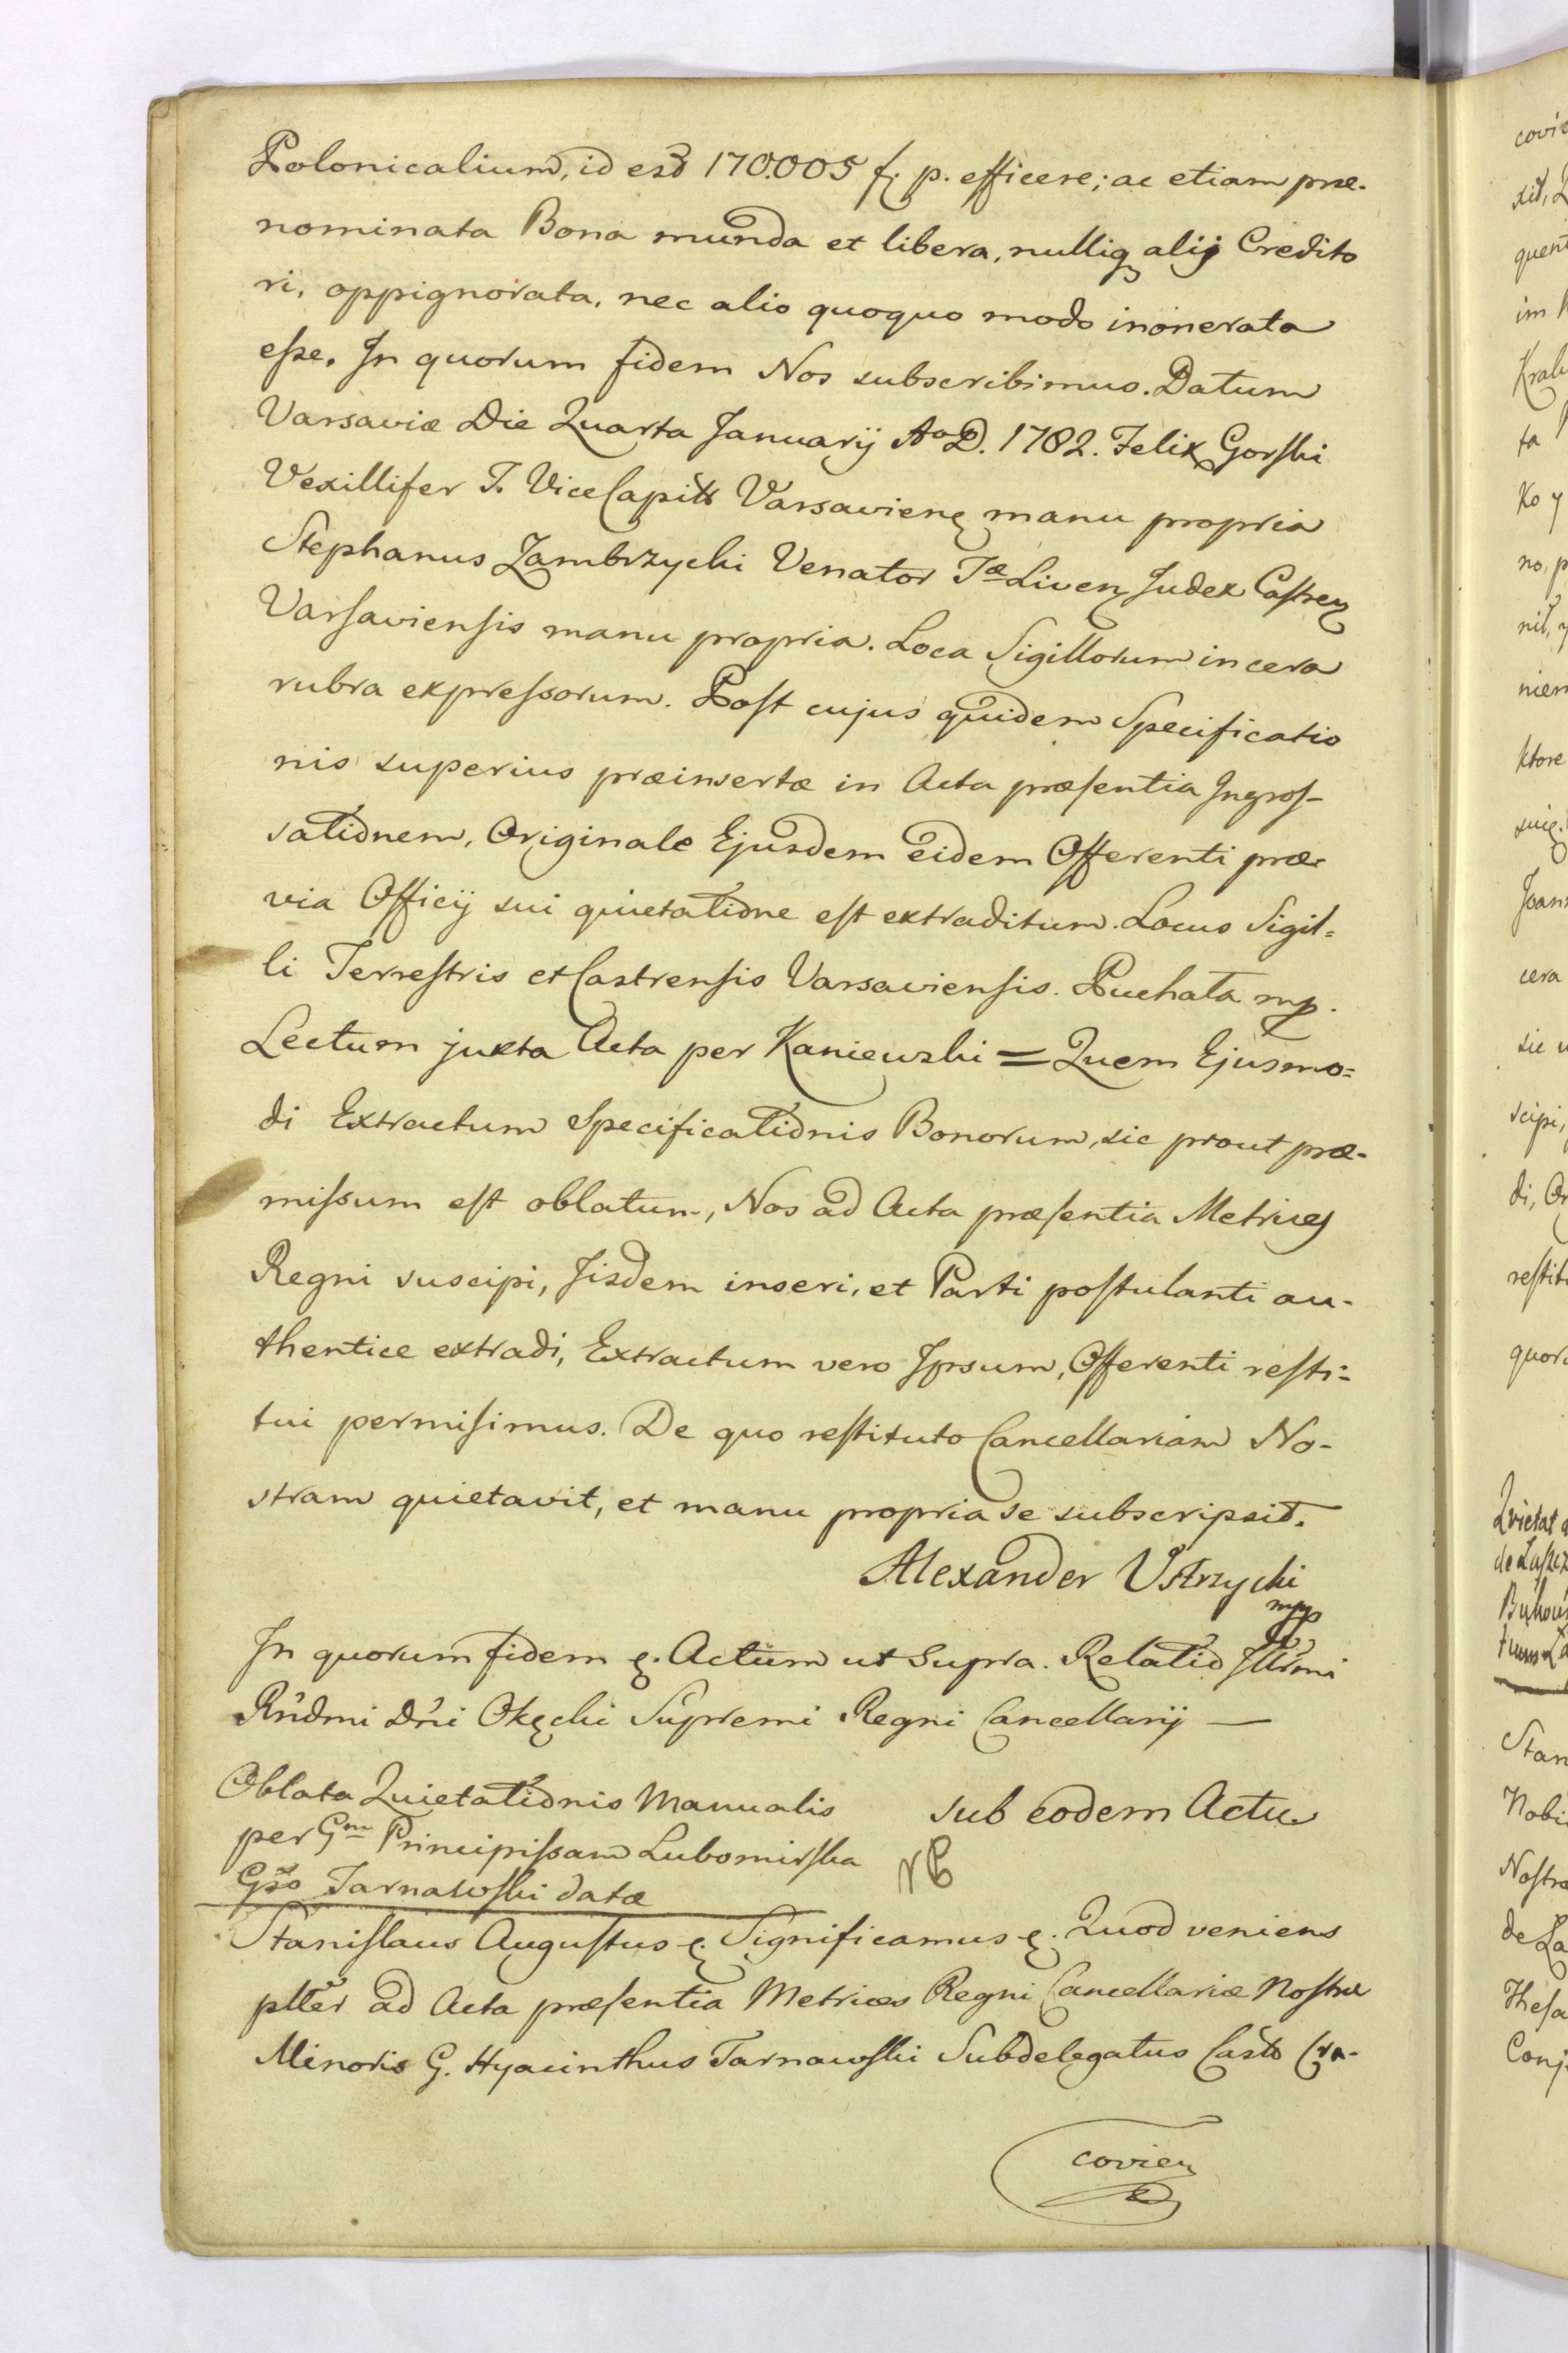 Polonicalium, id est 170.005 f. p. efficere; ac etiam præ-
nominata Bona munda et libera, nulliq alij Credito
ri, oppignorata, nec alio quoquo modo inonerata
esse. In quorum fidem Nos subscribimus. Datum
Varsaviæ Die Quarta Januarij Ao D. 1782. Felix Gorski
Vexillifer T. ViceCapitt Varsavien manu propria
Stephanus Zambrzycki Venator Tæ Liven Judex Castren
Varsaviensis manu propria. Loca Sigillorum in cera
rubra expressorum. Post cujus quidem Specificatio
nis superius præinsertæ in Acta præsentia Ingros-
sationem, Originale Ejusdem eidem Offerenti præ-
via Officij sui quietatione est extraditum. Locus Sigil=
li Terrestris et Castrensis Varsaviensis. Puchata mp.
Lectum juxta Acta per Kaniewski = Quem Ejusmo=
di Extractum Specificationis Bonorum, sic prout præ-
missum est oblatum, Nos ad Acta præsentia Metrices
Regni suscipi, Iisdem inseri, et Parti postulanti au-
thentice extradi, Extractum vero Ipsum, Offerenti resti=
tui permisimus. De quo restituto Cancellariam No-
stram quietavit, et manu propria se subscripsit.
Alexander Ustrzycki
mpp
In quorum fidem &. Actum ut Supra. Relatio Illrmi
Rndmi Dni Okęcki Supremi Regni Cancellarij —
Oblata Quietationis Manualis
per Gm Principissam Lubomirska
Gso Tarnawski datæ
sub eodem Actu
NB
Stanislaus Augustus &. Significamus &. Quod veniens
plter ad Acta præsentia Metrices Regni Cancellariæ Nostræ
Minoris G. Hyacinthus Tarnawski Subdelegatus Castr Cra-
covien